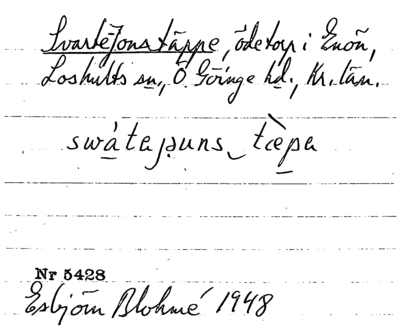 SvarteJons täppe, ödetorp i Enön,
Loshults sn., Ö. Göinge hd., Kr. län.
swàta juns ‿ tæ̀pa
Nr 5428
Esbjörn Blohmé 1948